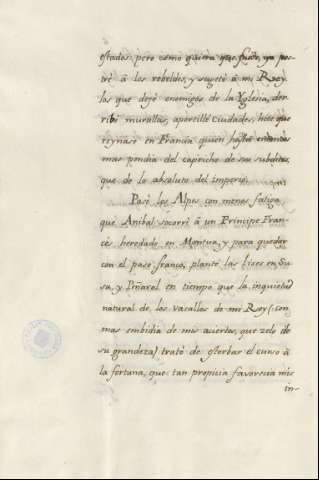 estados: pero como quiera que fuese, yo pos-
trè à los rebeldes, y sugetè à mi Rey
los que dejè enemigos de la Yglesia, der-
ribè murallas, aportillè Ciudades, hice que
reynase en Francia quien hasta entonces
mas pendia del capricho de sus subditos
que de lo absoluto del imperio.
Pasè los Alpes con menos fatiga,
que Anibal: socorrì à un Principe Fran-
cès heredado en Mantua, y para quedar
con el paso franco, plantè las lises en Su-
sa, y Piñarol en tiempo que la inquietud
natural de los vasallos de mi Rey (con
mas embidia de mis aciertos, que zelo de
su grandeza) tratò de estorbar el curso à
la fortuna, que tan propicia favorecia mis
in-